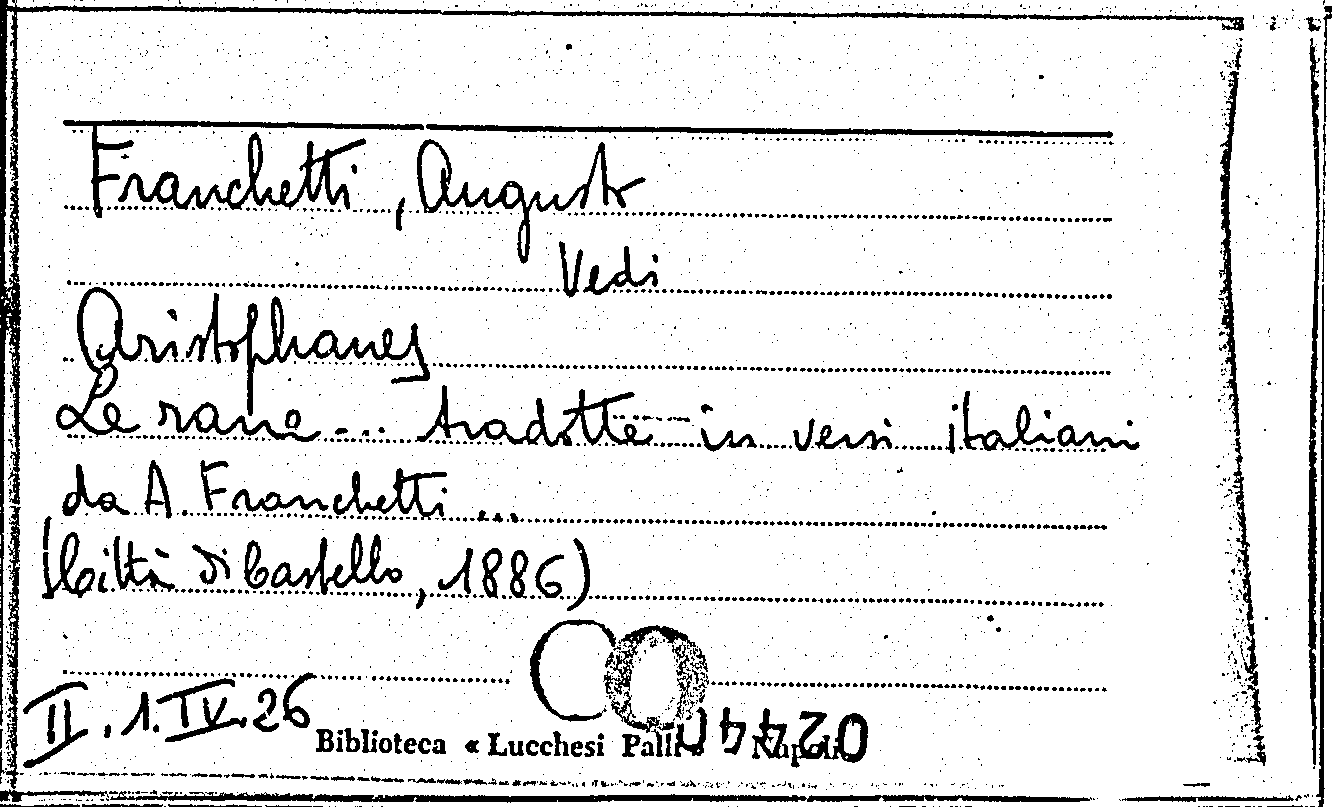 Franchetti, Augusto
Vedi
Aristophanes
Le rane... tradotte in versi italiani
da A. Franchetti ...
(Città di Castello, 1886)
II.1.IV.26
Biblioteca « Lucchesi Palli » Napoli